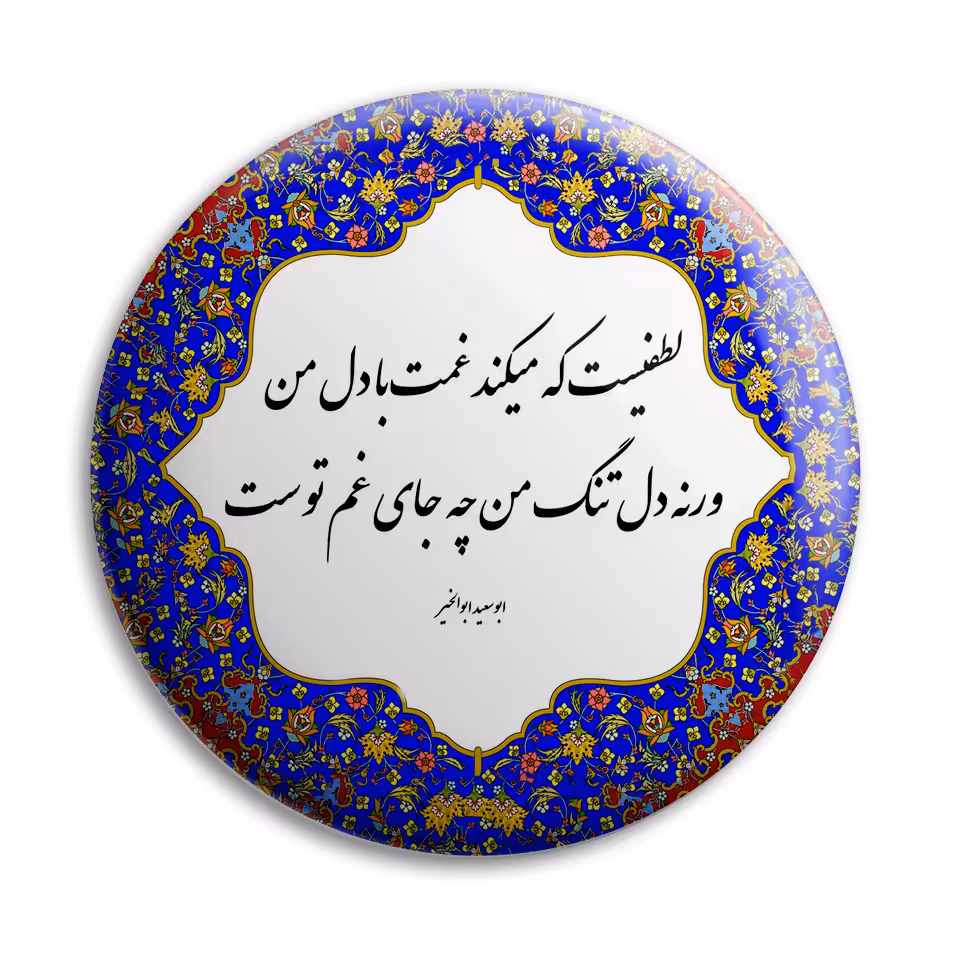 لطفیست که میکند غمت با دل من
ورنه دل تنگ من چه جای غم توست
ابوسعید ابوالخیر